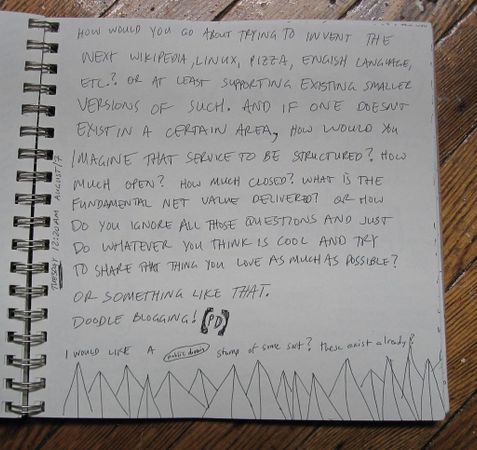 HOW WOULD YOU GO ABOUT TRYING TO INVENT THE
NEXT WIKIPEDIA, LINUX, PIZZA, ENGISH LANGUAGE,
ETC.? OR AT LEAST SUPPORTING EXISTING SMALLER
VERSIONS OF SUCH. AND IF ONE DOESN'T
EXIST IN A CERTAIN AREA, HOW WOULD YOU
IMAGINE THAT SERVICE TO BE STRUCTURED? HOW
MUCH OPEN? HOW MUCH CLOSED? WHAT IS THE
FUNDAMENTAL NET VALUE DELIVERED? OR HOW
DO YOU IGNORE ALL THOSE QUESTIONS AND JUST
DO WHATEVER YOU THINK IS COOL AND TRY
TO SHARE THAT THING YOU LOVE AS MUCH AS POSSIBLE?
OR SOMETHING LIKE THAT.
DOODLE BLOGGING! (PD)
I WOULD LIKE A public domain stamp of some sort? these exist already?
TUESDAY 12:20AM AUGUST/7